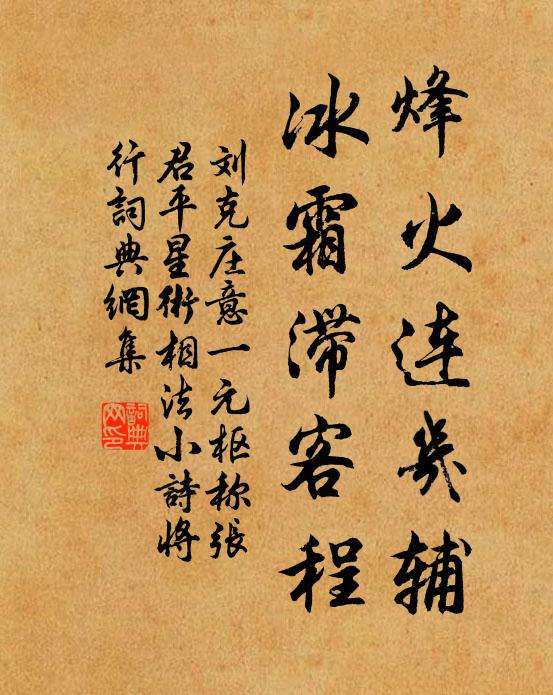 烽火连畿辅
冰霜滞客程
刘克庄意一元枢称張
君平星術相法小詩将
行詞典網集
詞典
网印